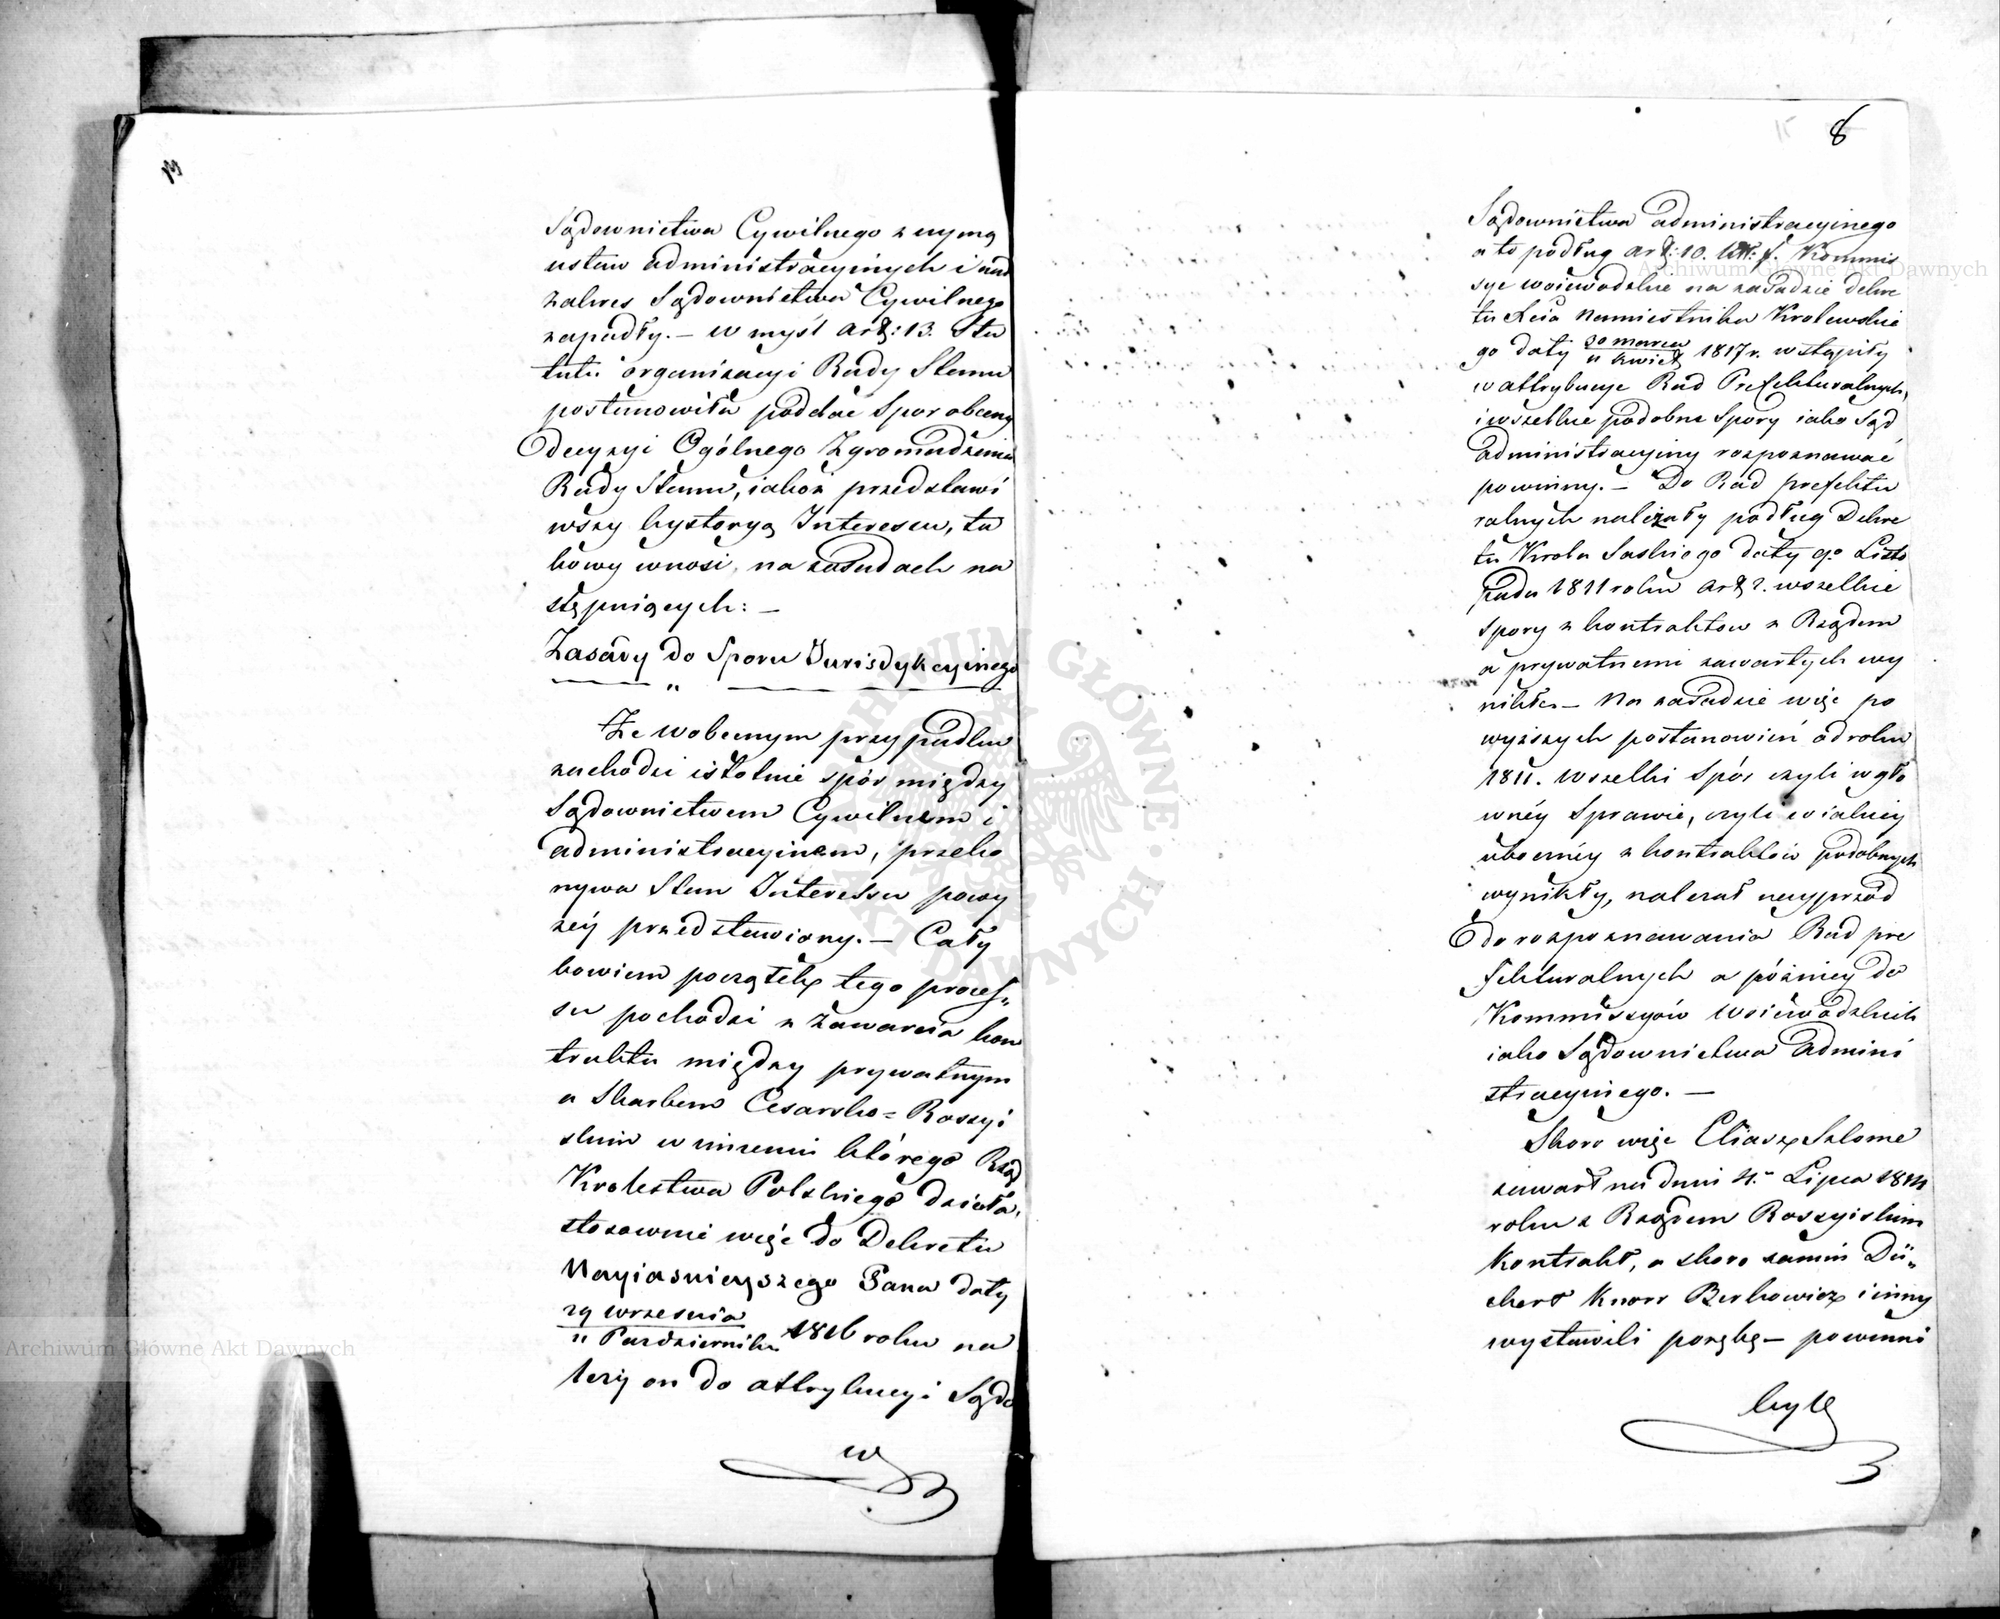 Sądownictwa Cywilnego z uymą
ustaw administracyinych i nad
zakres Sądownictwa Cywilnego
zapadły. — w myśl art: 13. Sta
tutu organizacyi Rady Stanu
postanowiła poddać Spor obecny
Decyzyi Ogólnego Zgromadzenia
Rady Stanu, iakoż przedstawi
wszy hystoryą Interessu, ta
kowy wnosi, na zasadach na
stępuiących: —
Zasady do Sporu Jurisdykcyinego
Ze w obecnym przypadku
zachodzi istotnie spór między
Sądownictwem Cywilnem i
administracyinem, przeko
nywa Stan Interessu powy
żey przedstawiony. — Cały
bowiem początek tego proces„
su pochodzi z zawarcia kon
traktu między prywatnym
a Skarbem Cesarsko=Rossyi
skim w imieniu którego Rząd
Krolestwa Polskiego działa,
stosownie więc do Dekretu
Nayiasnieyszego Pana daty
29 wrzesnia
11 Pazdziernika 1816 roku na
leży on do attrybucyi Sądo
w
8
Sądownictwa administracyinego
a to podług art: 10. litt: f. Kommis
sye woiewodzkie na zasadzie dekre
tu Xcia Namiestnika Krolewskie
go daty 30 marca
11 kwiet 1817 r. wstąpiły
w attrybucye Rad Prefekturalnych,
i wszelkie podobne Spory iako Sąd
administracyiny rozpoznawać
powinny. — Do Rad prefektu
ralnych należały podług Dekre
tu Krola Saskiego daty 9o Listo
pada 1811 roku art 2. wszelkie
spory z kontraktow z Rządem
a prywatnemi zawartych wy
nikłe — Na zasadzie więc po
wyższych postanowień od roku
1811. wszelki Spór czyli w gło
wnéy Sprawie, czyli w iakiey
ubocznéy z kontraktów podobnych
wynikły, należał nayprzód
do rozpoznawania Rad pre
fekturalnych a pózniey do
Kommissyów Woiewodzkich
iako Sądownictwa Admini
stracyinego. —
Skoro więc Eliasz Salome
zawarł na dniu 4. Lipca 1814
roku z Rządem Rossyiskim
kontrakt, a skoro zanim Dü„
chert Knorr Berkowicz i inny
wystawili porękę — powinni
byli